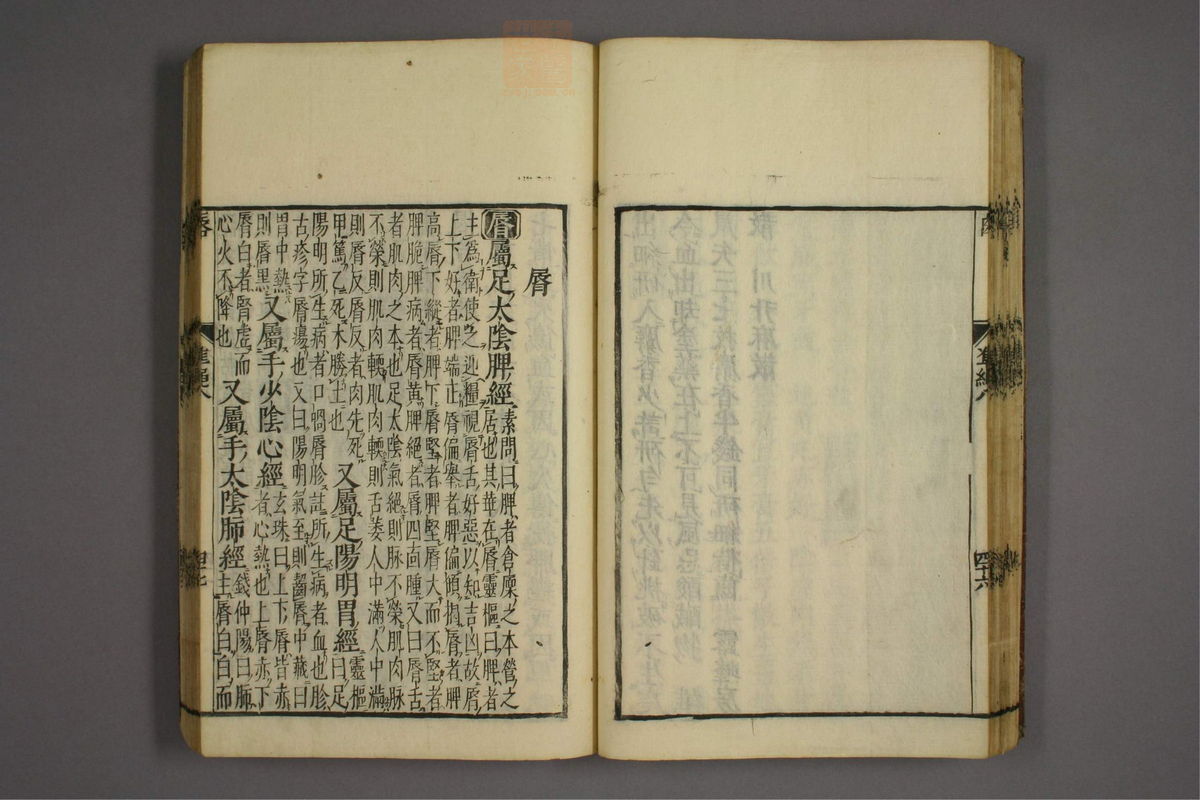 脣
脣屬足太陰脾經 素問曰脾者倉廩之本營之
居也其華在脣靈樞曰脾者
主為衛使之迎糧視脣舌好惡以知吉凶故脣
上下好者脾端正脣偏舉者脾偏傾揭脣者脾
高脣下縱者脾下脣堅者脾堅脣大而不堅者
脾脆脾病者脣黃脾絕者脣四面腫又曰脣舌
者肌肉之本也足太陰氣絕則脈不榮肌肉脈
不榮則肌肉輭肌肉輭則舌萎人中滿人中滿
則脣反脣反者肉先死
甲篤乙死木勝土也
又屬足陽明胃經 靈樞
曰足
陽明所生病者口喎脣胗註所生病者血也胗
古疹字脣瘍也又曰陽明氣至則齧脣中藏曰
胃中熱
則脣黑
又屬手少陰心經 玄珠曰上下脣皆赤
者心熱也上脣赤下
脣白者腎虛而
心火不降也
又屬手太陰肺經 錢仲陽曰肺
主脣白白而